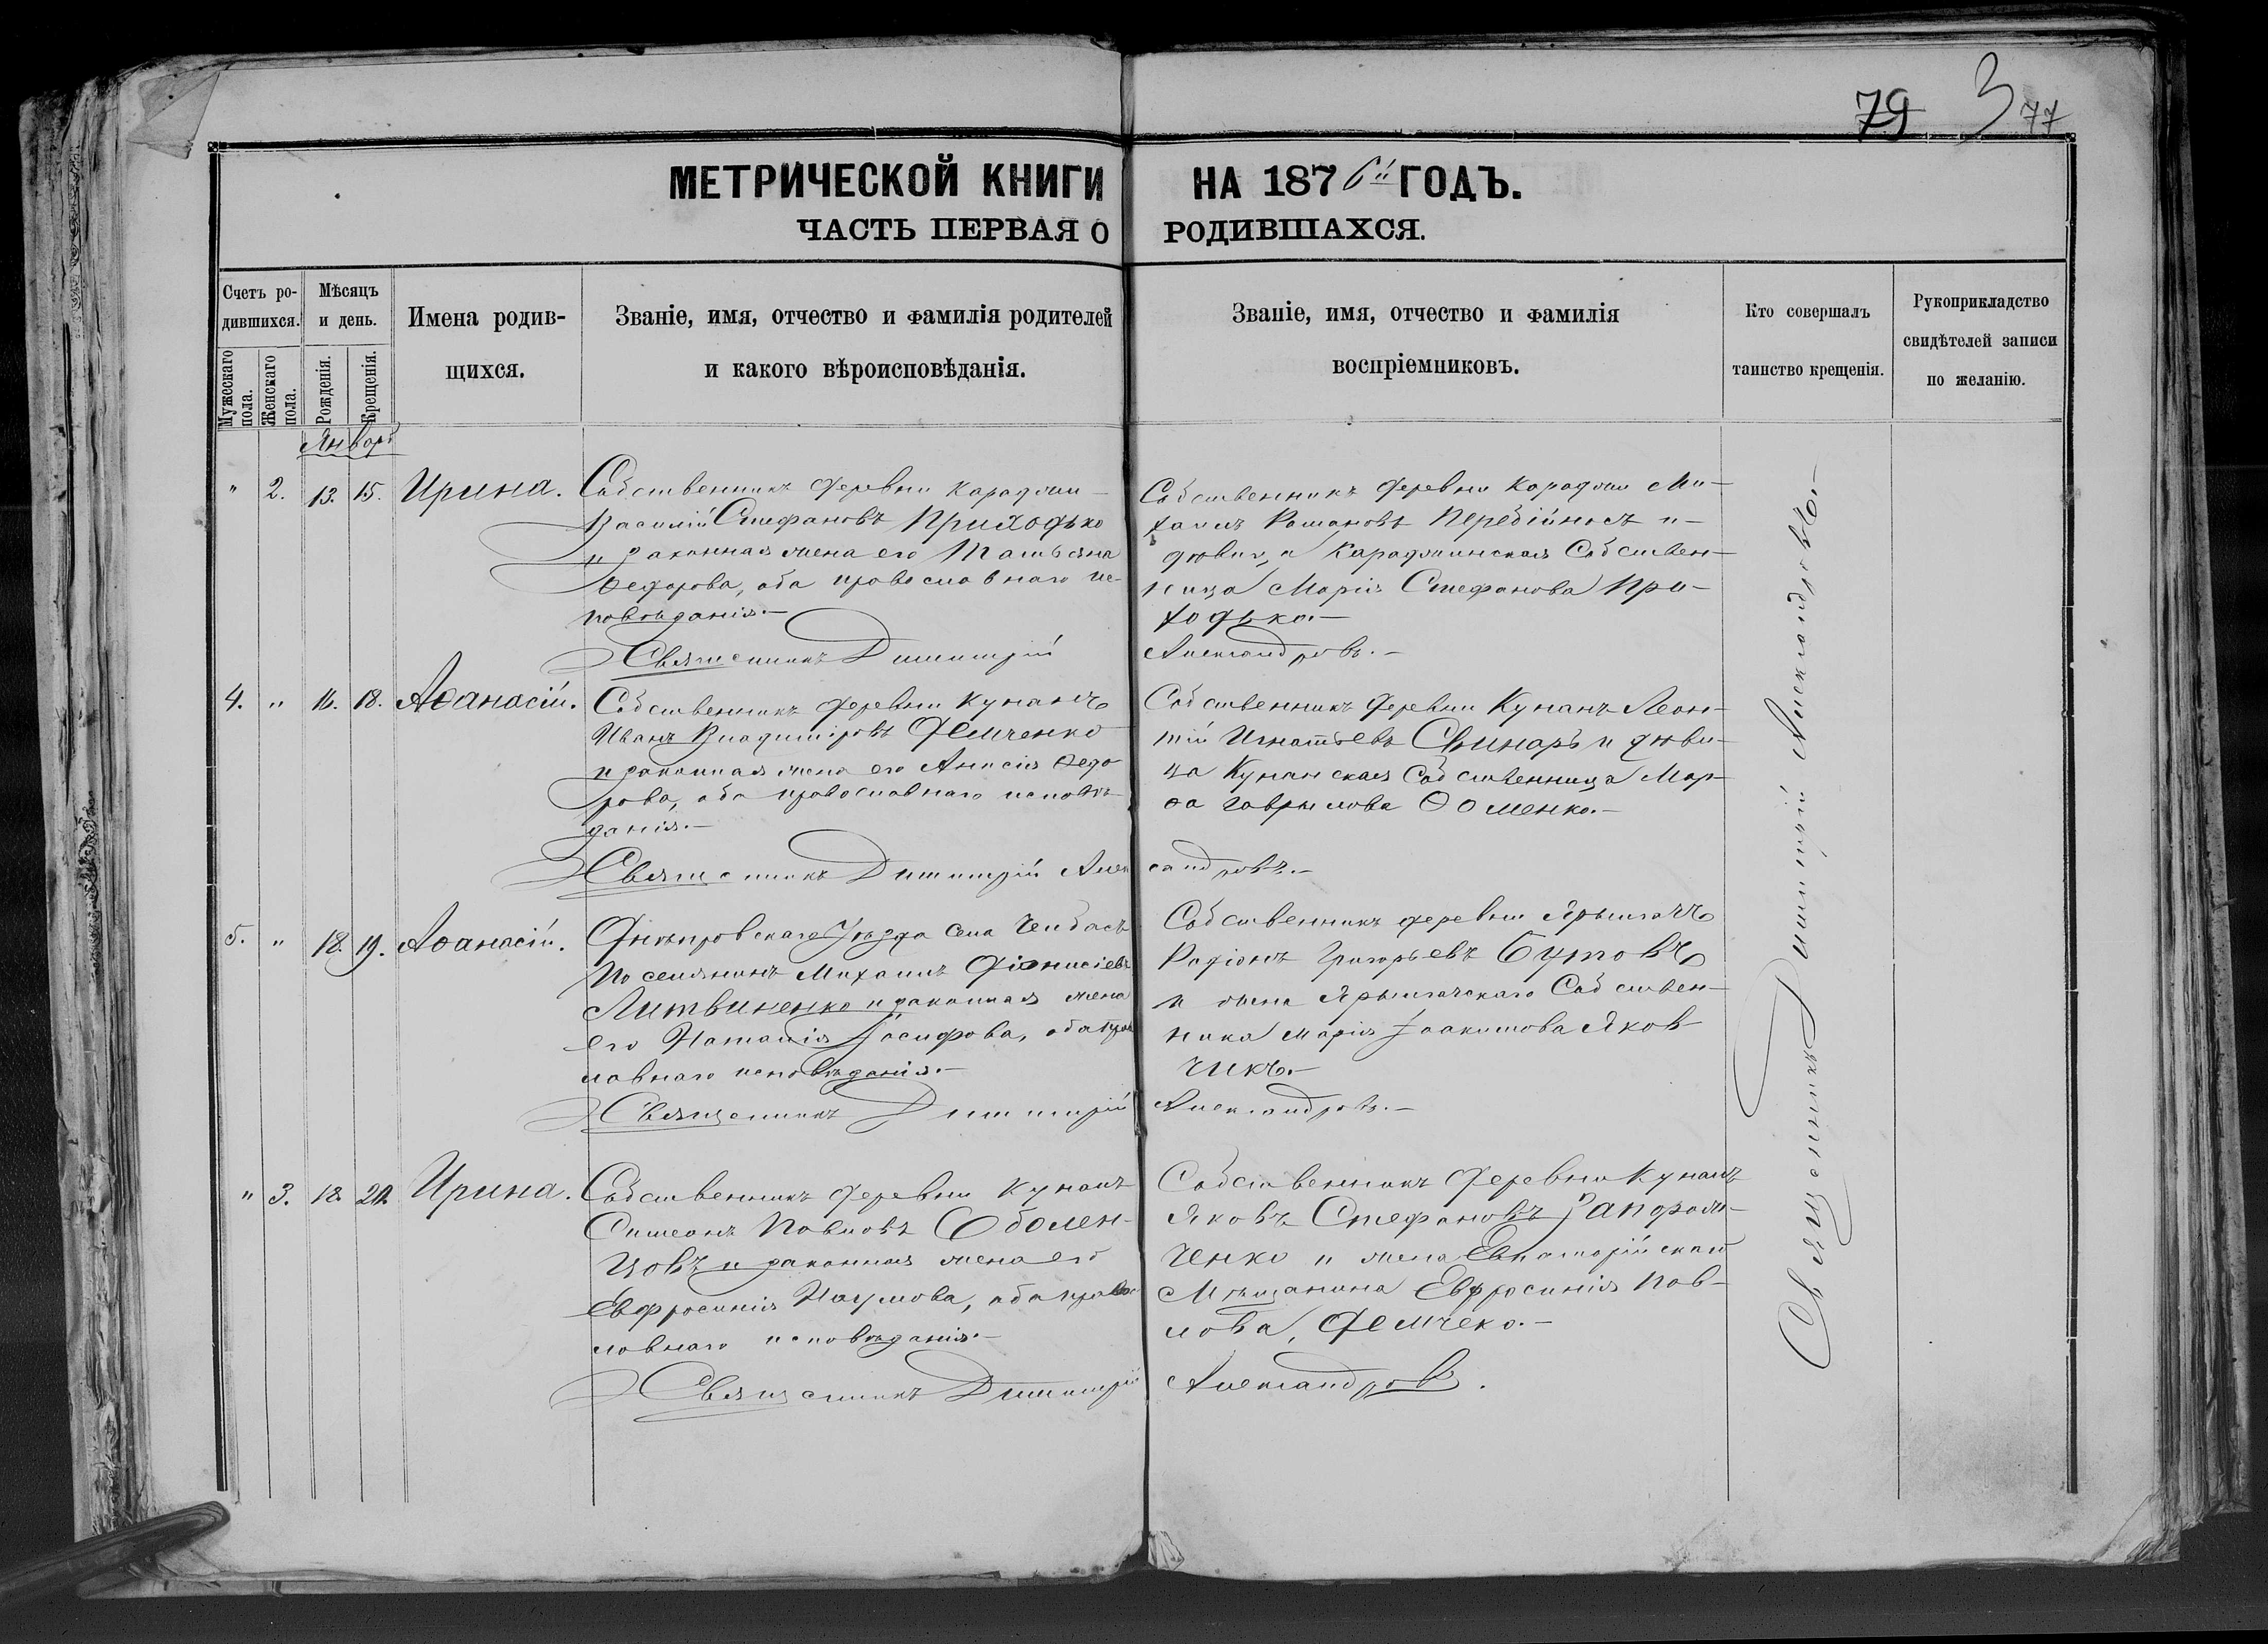 79 3 77
МЕТРИЧЕСКОЙ КНИГИ НА 1876й ГОДЪ.
ЧАСТЬ ПЕРВАЯ О РОДИВШАХСЯ.
Счетъ ро-
дившихся.
Мужескаго пола.
Женскаго пола.
Мѣсяцъ
и день.
Рожденія.
Крещенія.
Имена родив-
щихся.
Званіе, имя, отчество и фамилія родителей
и какого вѣроисповѣданія.
Званіе, имя, отчество и фамилія
воспріемниковъ.
Кто совершалъ
таинство крещенія.
Рукоприкладство
свидѣтелей записи
по желанію.
Январь
" 2. 13. 15. Ирина.
Собственникъ деревни Караджи
Василій Стефановъ Приходько
и законная жена его Татьяна
Ѳедорова, оба православнаго ис-
повѣданія.—
Священникъ Димитрій Александровъ.—
Собственникъ деревни Караджи Ми-
хаилъ Романовъ Перебійносъ и
дѣвица Караджинская Собствен-
ница Марія Стефанова При-
ходько.—
4. " 16. 18. Аѳанасій.
Собственникъ деревни Кунанъ
Иванъ Владиміровъ Демченко
и законная жена его Анисія Ѳедо-
рова, оба православнаго исповѣ-
данія.—
Священникъ Димитрій Александровъ.—
Собственникъ деревни Кунанъ Леон-
тій Игнатьевъ Свинарь и дѣви-
ца Кунанская Собственница Мар-
ѳа Гаврилова Ѳоменко.—
5. " 18. 19. Аѳанасій.
Днѣпровскаго Уѣзда Села Чендасъ
Поселянинъ Михаилъ Діонисіевъ
Литвиненко и законная жена
его Наталія Іосифова, оба прав
лавнаго исповѣданія.—
Священникъ Димитрій Александровъ.—
Собственникъ деревни Ярылгачъ
Родіонъ Григорьевъ Бутовъ
и жена Ярылгачскаго Собствен-
ника Марія Іоакимова Яков-
чикъ.—
" 3. 18. 20. Ирина.
Собственникъ деревни Кунанъ
Симеонъ Павловъ Оболен-
цовъ и законная жена его
Евфросинія Наумова, оба право
лавнаго исповѣданія.—
Священникъ Димитрій Александровъ.
Собственникъ деревни Кунанъ
Яковъ Стефановъ Запорож-
ченко и жена Евпаторійскаго
Мѣщанина Евфросинія Пав-
лова, Демчеко.—
Священникъ Димитрій Александровъ.—